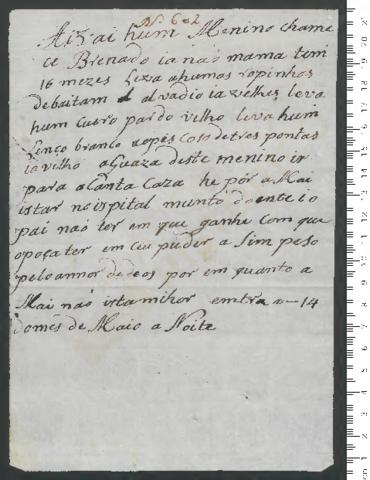 N. 602
Ai vai hum Menino chama
ce Brenado ia naõ mama tem
16 mezes Leva ahumas ropinhos
debaitam alvadio ia velhes leva
hum Cuero pardo vilho leva hum
Lenço branco aopescoso detres pontas
ia vilho a Cauza deste menino ir
para a Canta Caza he pór a Mai
istar noispital munto doente eo
pai naõ ter em que ganhe com que
oposa ter em Ceu puder a Sim peso
peloannor dedeos por em quanto a
Mai naõ istamilhor emtra a 14
domês de Maio a Noite